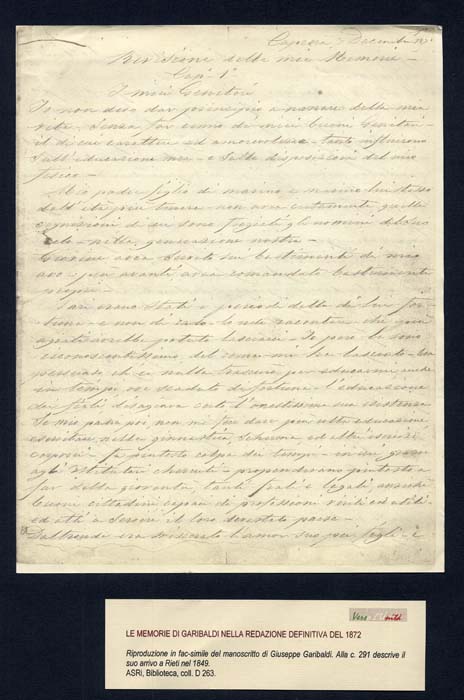 Caprera Dicembre
Revisione delle mie Memorie –
Cap. 1°
I miei Genitori
Io non devo dar principio a narrare della mia
vita, senza far cenno di miei buoni Genitori –
il di cui carattere ed amorevolezza – tanto influirono
sull'educazione mia – e sulle disposizioni del mio
fisico –
Mio padre figlio di marino e marino lui stesso
dall'età più tenera non avea certamente quelle
cognizioni di cui sono fregiati gli uomini del suo
ceto – nella generazione nostra –
Giovine avea servito su bastimenti di mio
avo – e più avanti avea comandato bastimenti
propri –
stati i periodi della di lui for
tuna – e non di rado lo udii raccontare – che più
agiati avrebbe potuto lasciarci – Io però le sono
riconoscentissimo del nome mi ha lasciato –
che in nulla per educarmi anche
in tempi ove scaduto di fortuna – l'educazione
dei figli disagiava certo l'onestissima sua esistenza
Se mio padre poi non mi fece dare più alta educazione
nella ginnastica, scherma, ed altri esercizi
corporei – fu piuttosto colpa dei tempi – in cui grazie
agli Istitutori chercuti – propendevano piuttosto a
far della gioventù, tanti frati e legali, anziché
buoni cittadini capaci di professioni virili ed utili
ed atti a servire il loro paese –
era sviscerato l'amor suo per figli – e
Vero
LE MEMORIE DI GARIBALDI NELLA REDAZIONE DEFINITIVA DEL 1872
Riproduzione in fac-simile del manoscritto di Giuseppe Garibaldi. Alla c. 291 descrive il
suo arrivo a Rieti nel 1849.
ASRi, Biblioteca, coll. D 263.